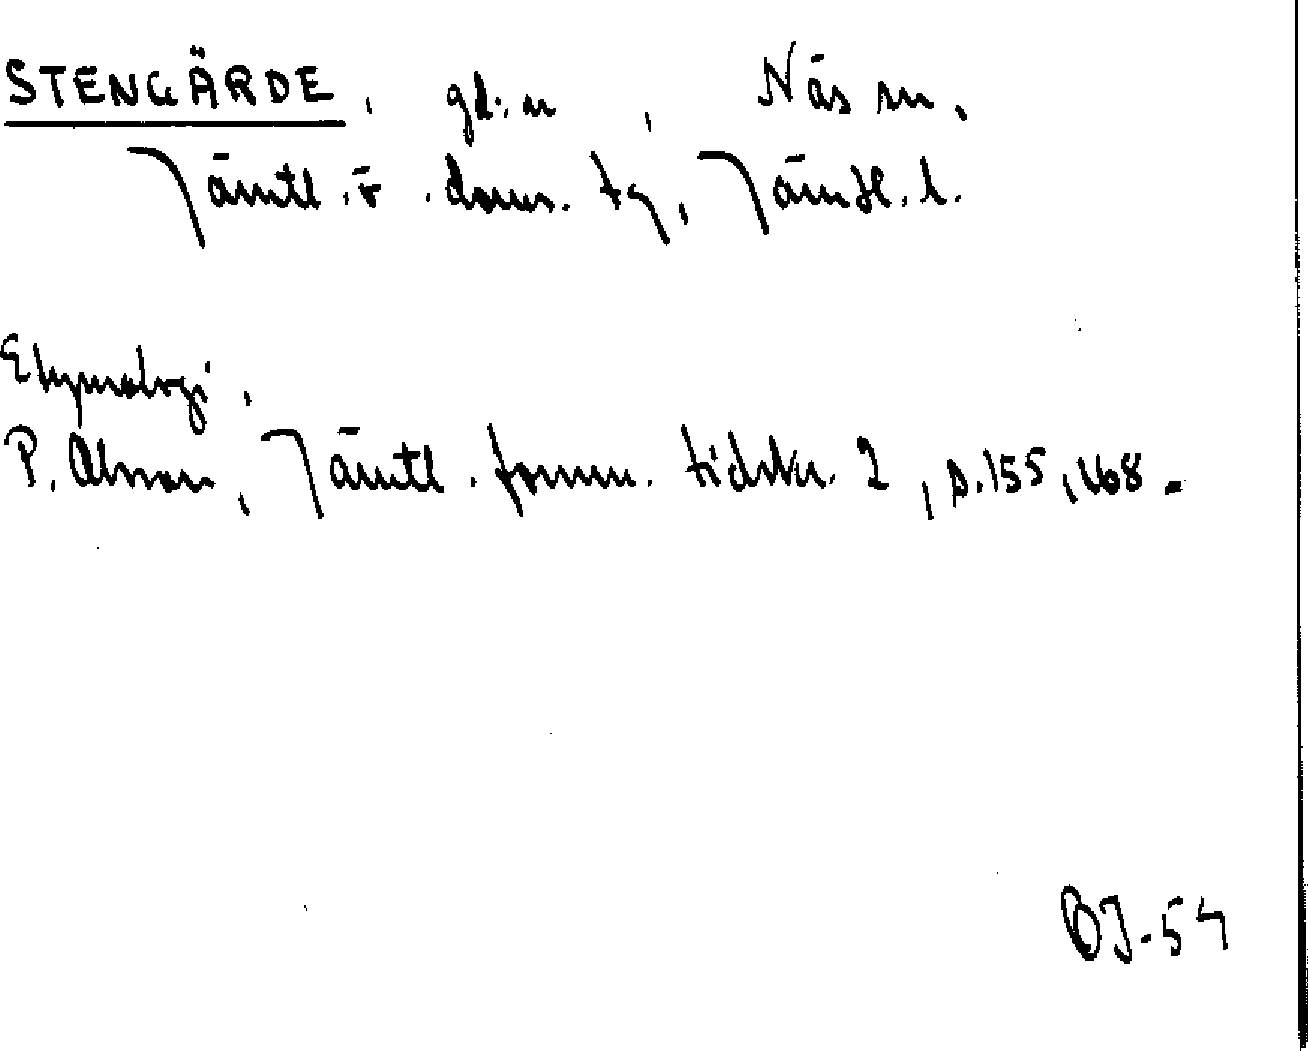 STENGÄRDE, gd:n, Näs sn,
Jämtl. v. doms. tg, Jämtl. l.
Etymologi,
P. Olsson, Jämtl. fornm. tidskr. 2, s. 155, 168.
OJ-54